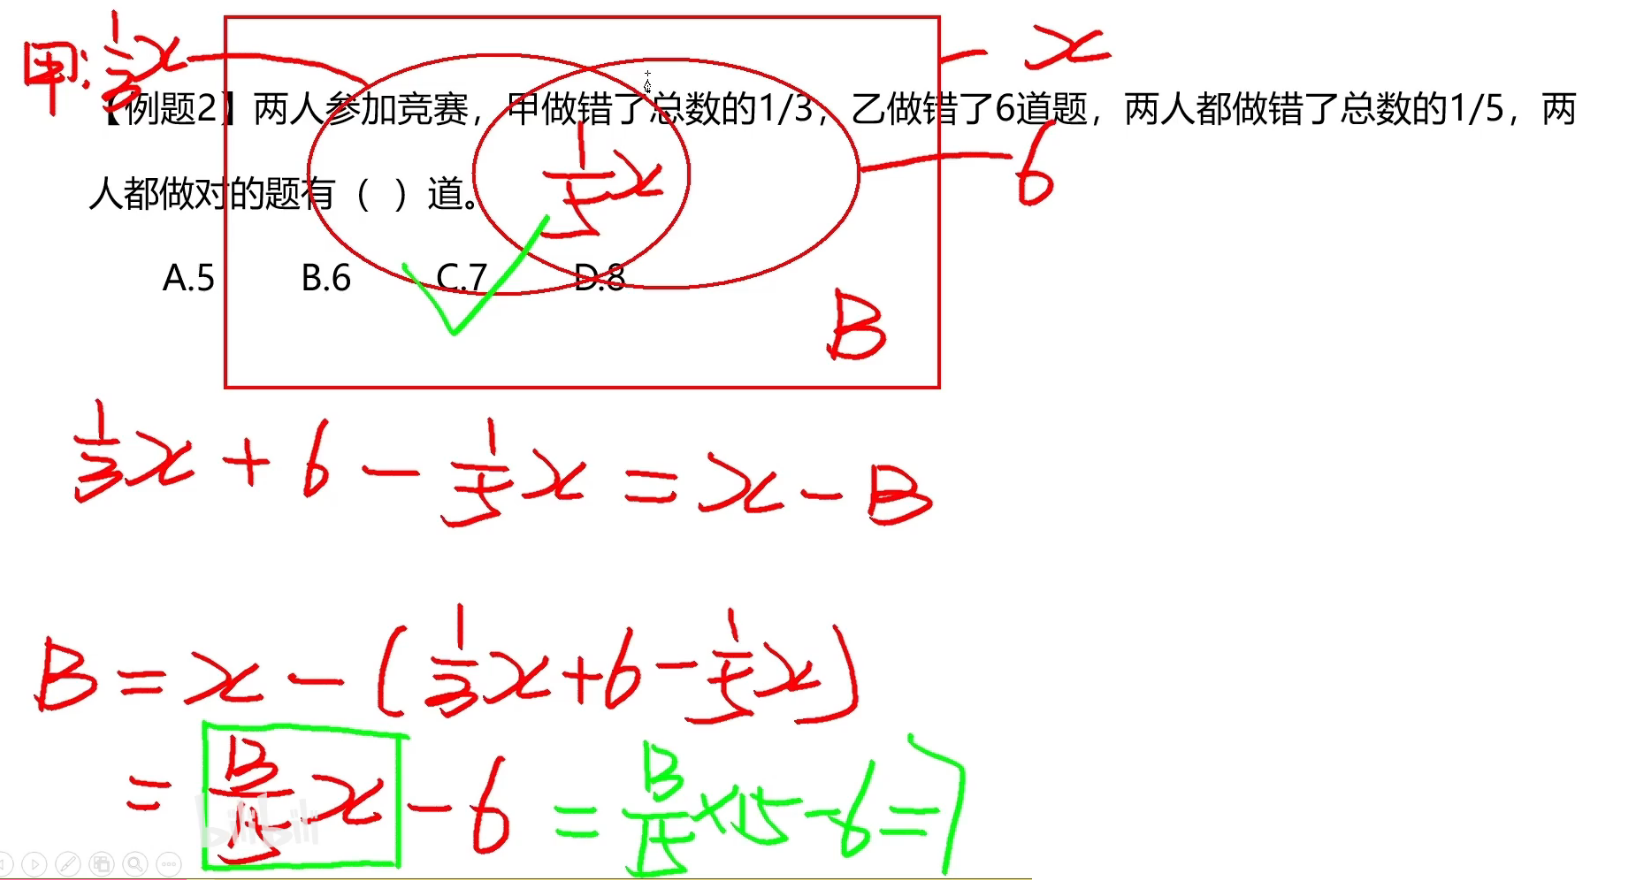 甲: 1/3 x
x
【例题2】两人参加竞赛，甲做错了总数的1/3，乙做错了6道题，两人都做错了总数的1/5，两
1/5 x
6
人都做对的题有（ ）道。
A.5 B.6 C.7 D.8
B
1/3 x + 6 - 1/5 x = x - B
B = x - (1/3 x + 6 - 1/5 x)
= 13/15 x - 6 = 13/15 × 15 - 6 = 7
bilibili